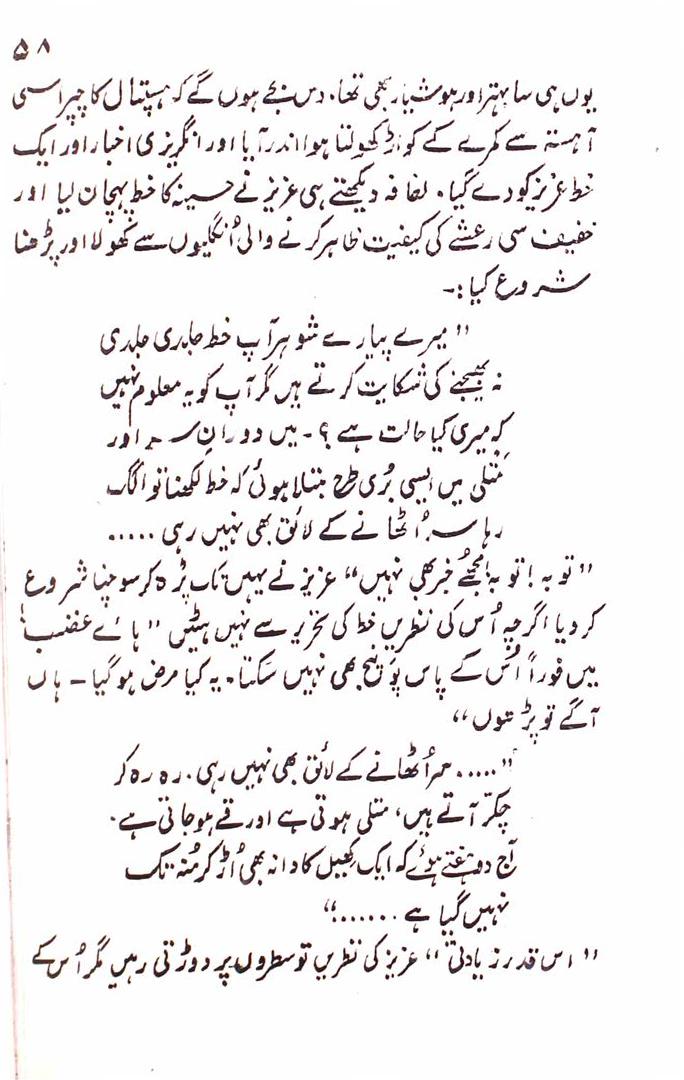 ۵۸
یوں ہی سا بہتر اور ہوشیار بھی تھا۔ دس بجے ہوں گے کہ ہسپتال کا چپراسی
آہستہ سے کمرے کے کواڑ کھولتا ہوا اندر آیا اور انگریزی اخبار اور ایک
خط عزیز کو دے گیا۔ لفافہ دیکھتے ہی عزیز نے حسینہ کا خط پہچان لیا اور
خفیف سی رعشے کی کیفیت ظاہر کرنے والی اُنگلیوں سے کھولا اور پڑھنا
شروع کیا:۔
"میرے پیارے شوہر آپ خط جلدی جلدی
نہ بھیجنے کی شکایت کرتے ہیں مگر آپ کو یہ معلوم نہیں
کہ میری کیا حالت ہے؟۔ میں دورانِ سر اور
متلی میں ایسی بُری طرح مبتلا ہوئی کہ خط لکھنا تو الگ
رہا سر اُٹھانے کے لائق بھی نہیں رہی .....
"توبہ! توبہ! مجھے خبر بھی نہیں" عزیز نے یہیں تک پڑھ کر سوچنا شروع
کر دیا اگرچہ اُس کی نظریں خط کی تحریر سے نہیں ہٹیں "ہائے غضب!
میں فوراً اُس کے پاس پہونچ بھی نہیں سکتا۔ یہ کیا مرض ہو گیا۔ ہاں
آگے تو پڑھوں"
"..... سر اُٹھانے کے لائق بھی نہیں رہی۔ رہ رہ کر
چکّر آتے ہیں، متلی ہوتی ہے اور قے ہو جاتی ہے۔
آج دو ہفتے ہوئے کہ ایک کھیل کا دانہ بھی اُڑ کر مُنہ تک
نہیں گیا ہے ......."
"اس قدر زیادتی" عزیز کی نظریں تو سطروں پر دوڑتی رہیں مگر اُس کے